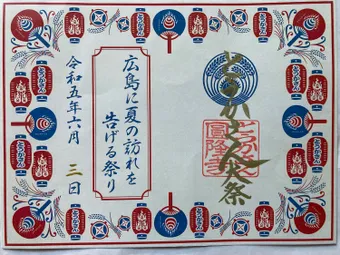 とうかさん大祭
とうかさん
圓隆寺
広島に夏の訪れを
告げる祭り
令和五年六月 三日